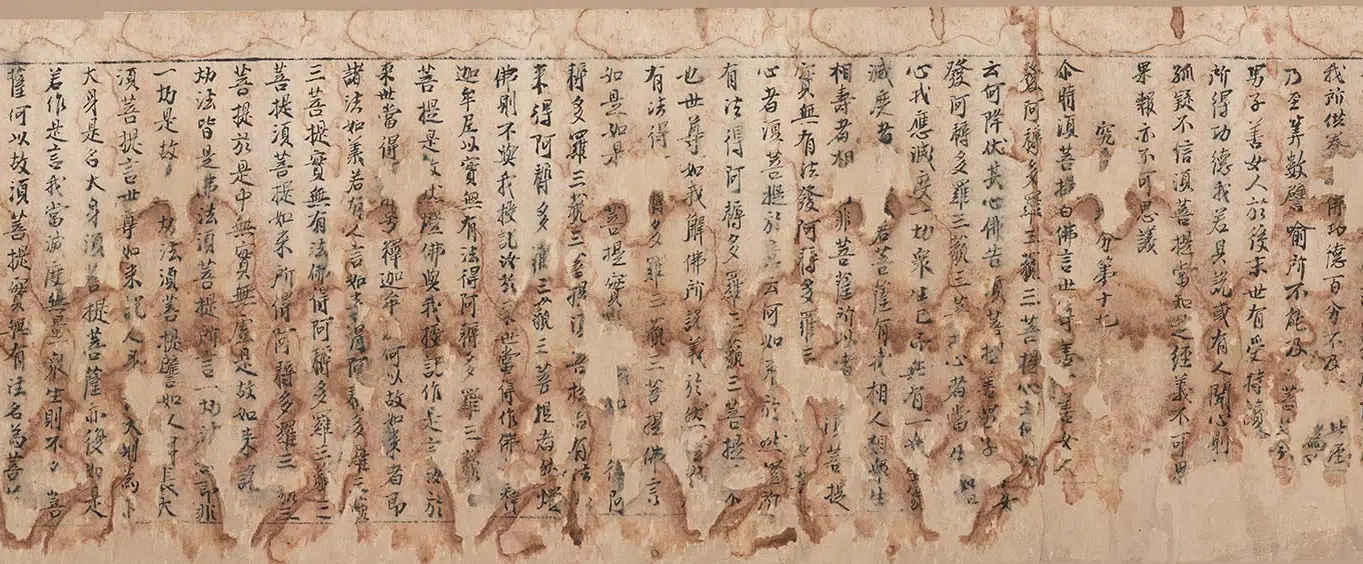 我所供養佛功德百分不及
乃至筭數譬喻所不能及菩
男子善女人於後末世有受持讀
所得功德我若具說或有人聞心則
狐疑不信須菩提當知是經義不可思
果報亦不可思議
究分第十七
尒時須菩提白佛言世尊善善女人
發阿耨多羅三藐三菩提心
云何降伏其心佛告須菩提善男子女
發阿耨多羅三藐三菩心者當生如是
心我應滅度一切衆生已而無有一衆
滅度者若菩薩有我相人相衆生
相壽者相非菩薩所以者須菩提
實無有法發阿耨多羅三
心者須菩提於意云何如來於然燈佛
有法得阿耨多羅三藐三菩提不
也世尊如我解佛所說義於然
有法得耨多羅三藐三菩提佛言
如是如是菩提實如得阿
耨多羅三藐三菩提須菩提若有法
來得阿耨多羅三藐三菩提者然燈
佛則不與我授記汝於來世當得作佛釋
迦牟尼以實無有法得阿耨多羅三藐
菩提是故然燈佛與我授記作是言汝於
來世當得号釋迦牟何以故如來者即
諸法如義若有人言如來得阿耨多羅三藐
三菩提實無有法佛得阿耨多羅三藐三
菩提須菩提如來所得阿耨多羅三藐三
菩提於是中無實無虛是故如來說
一切法皆是佛法須菩提所言一切法者即非
一切是故一切法須菩提譬如人身長大
須菩提言世尊如來說人身大則為非
大身是名大身須菩提菩薩亦復如是
若作是言我當滅度無量衆生則不名菩
薩何以故須菩提實無有法名為菩薩